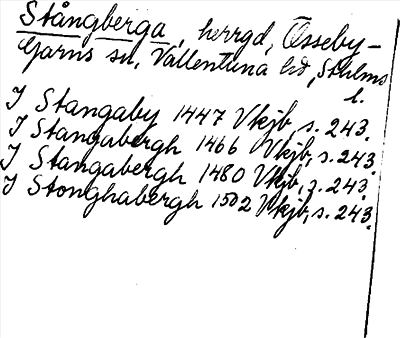 Stångberga, herrgd, Össeby-
Garns sn, Vallentuna hd, Sthlms
l.
J Stangaby 1447 Vkjb, s. 243.
J Stangabergh 1466 Vkjb, s. 243.
J Stangabergh 1480 Vkjb, s. 243.
J Stonghabergh 1502 Vkjb, s. 243.